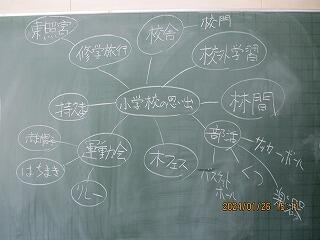 東照宮
校舎
校門
修学旅行
校外学習
小学校の思い出
林間
運動会
木フェス
部活
サッカーボール
はちまき
リレー
バスケットボール
2021/01/26 15: